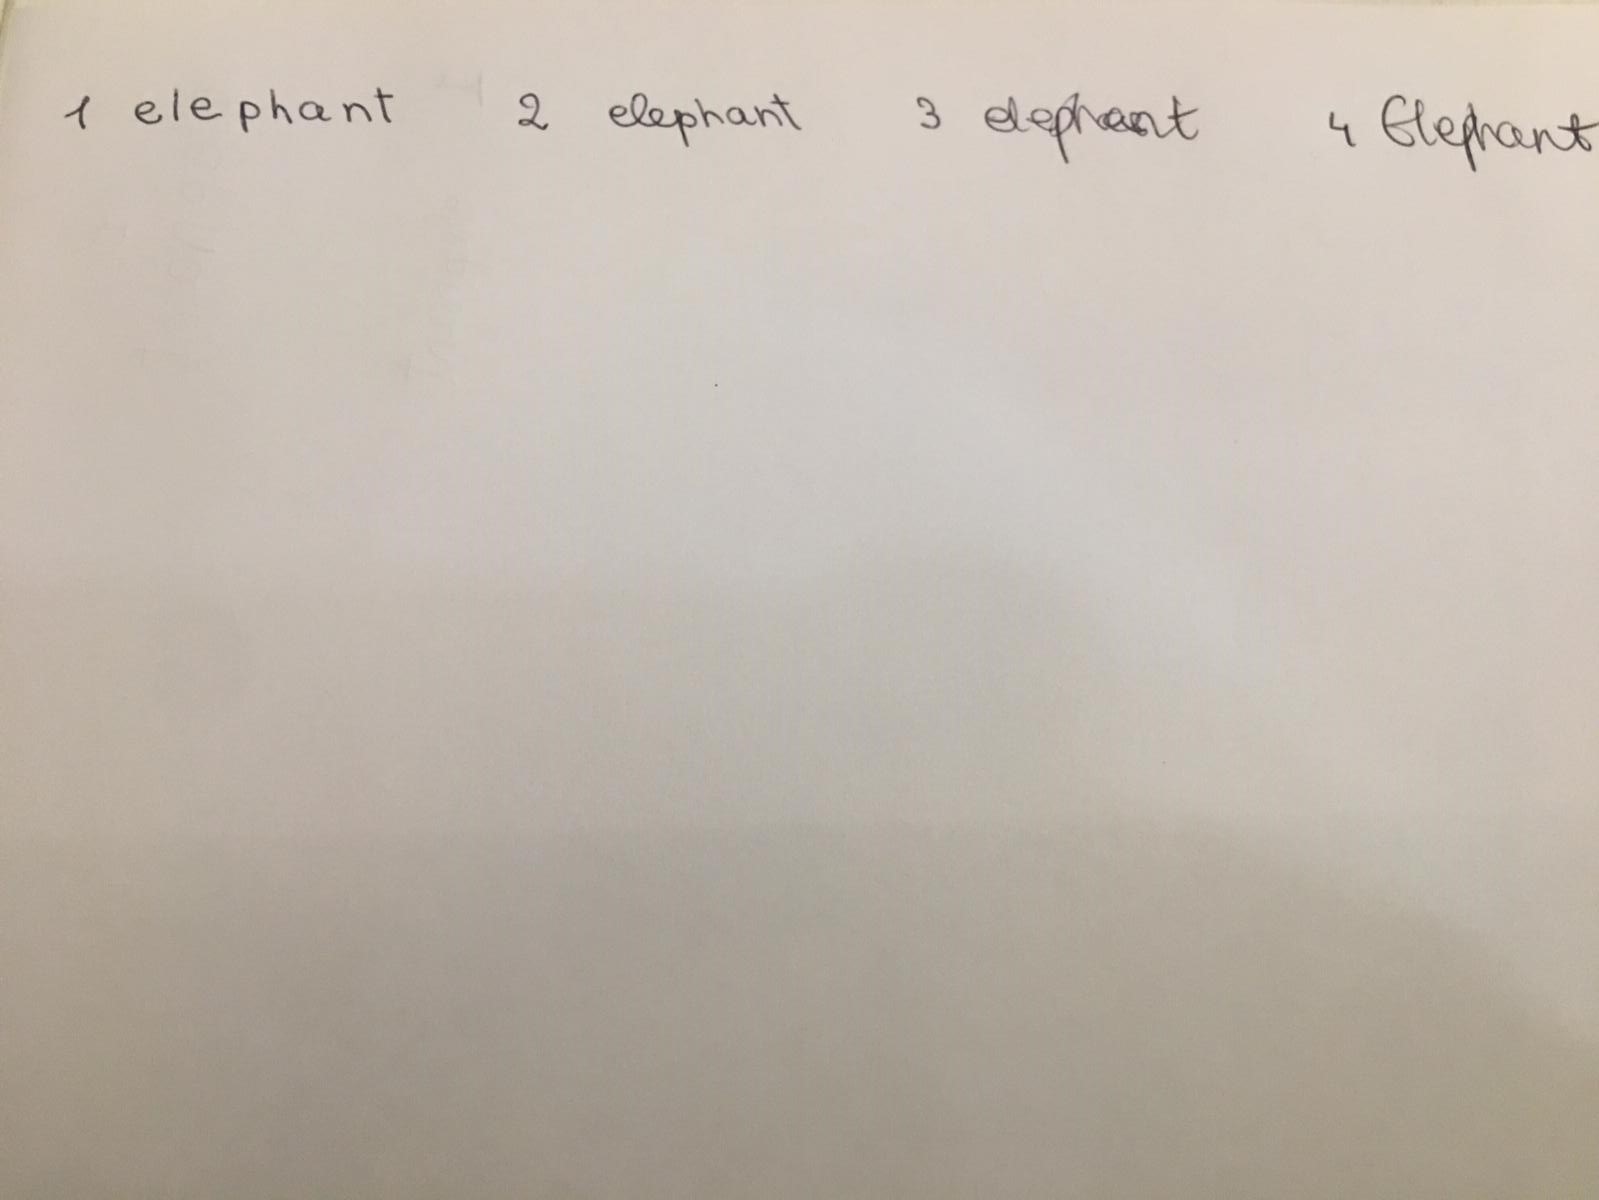 1 elephant 2 elephant 3 elephant 4 Elephant